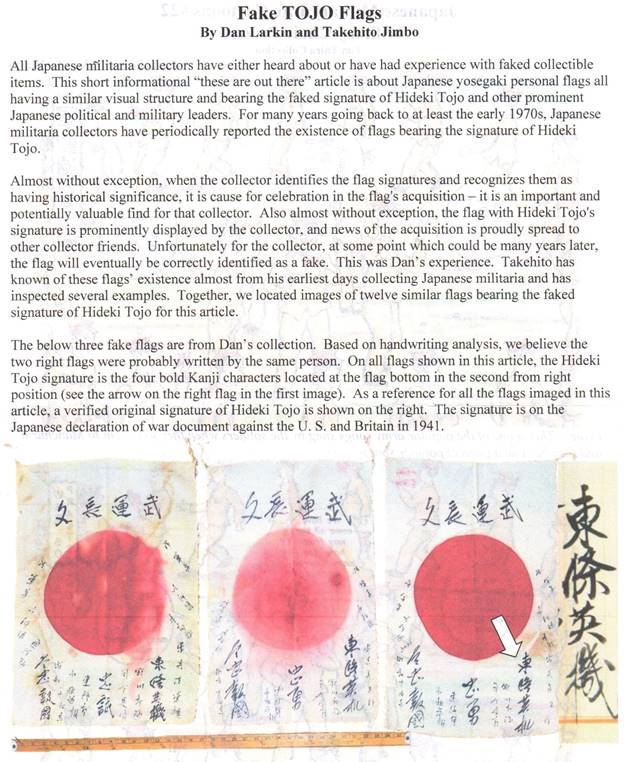 Fake TOJO Flags
By Dan Larkin and Takehito Jimbo
All Japanese militaria collectors have either heard about or have had experience with faked collectible
items.  This short informational “these are out there” article is about Japanese yosegaki personal flags all
having a similar visual structure and bearing the faked signature of Hideki Tojo and other prominent
Japanese political and military leaders.  For many years going back to at least the early 1970s, Japanese
militaria collectors have periodically reported the existence of flags bearing the signature of Hideki
Tojo.
Almost without exception, when the collector identifies the flag signatures and recognizes them as
having historical significance, it is cause for celebration in the flag's acquisition – it is an important and
potentially valuable find for that collector.  Also almost without exception, the flag with Hideki Tojo's
signature is prominently displayed by the collector, and news of the acquisition is proudly spread to
other collector friends.  Unfortunately for the collector, at some point which could be many years later,
the flag will eventually be correctly identified as a fake.  This was Dan’s experience.  Takehito has
known of these flags’ existence almost from his earliest days collecting Japanese militaria and has
inspected several examples.  Together, we located images of twelve similar flags bearing the faked
signature of Hideki Tojo for this article.
The below three fake flags are from Dan’s collection.  Based on handwriting analysis, we believe the
two right flags were probably written by the same person.  On all flags shown in this article, the Hideki
Tojo signature is the four bold Kanji characters located at the flag bottom in the second from right
position (see the arrow on the right flag in the first image).  As a reference for all the flags imaged in this
article, a verified original signature of Hideki Tojo is shown on the right.  The signature is on the
Japanese declaration of war document against the U. S. and Britain in 1941.
武運長久
東條英機
武運長久
東條英機
忠勇
武運長久
東條英機
忠勇
東條英機